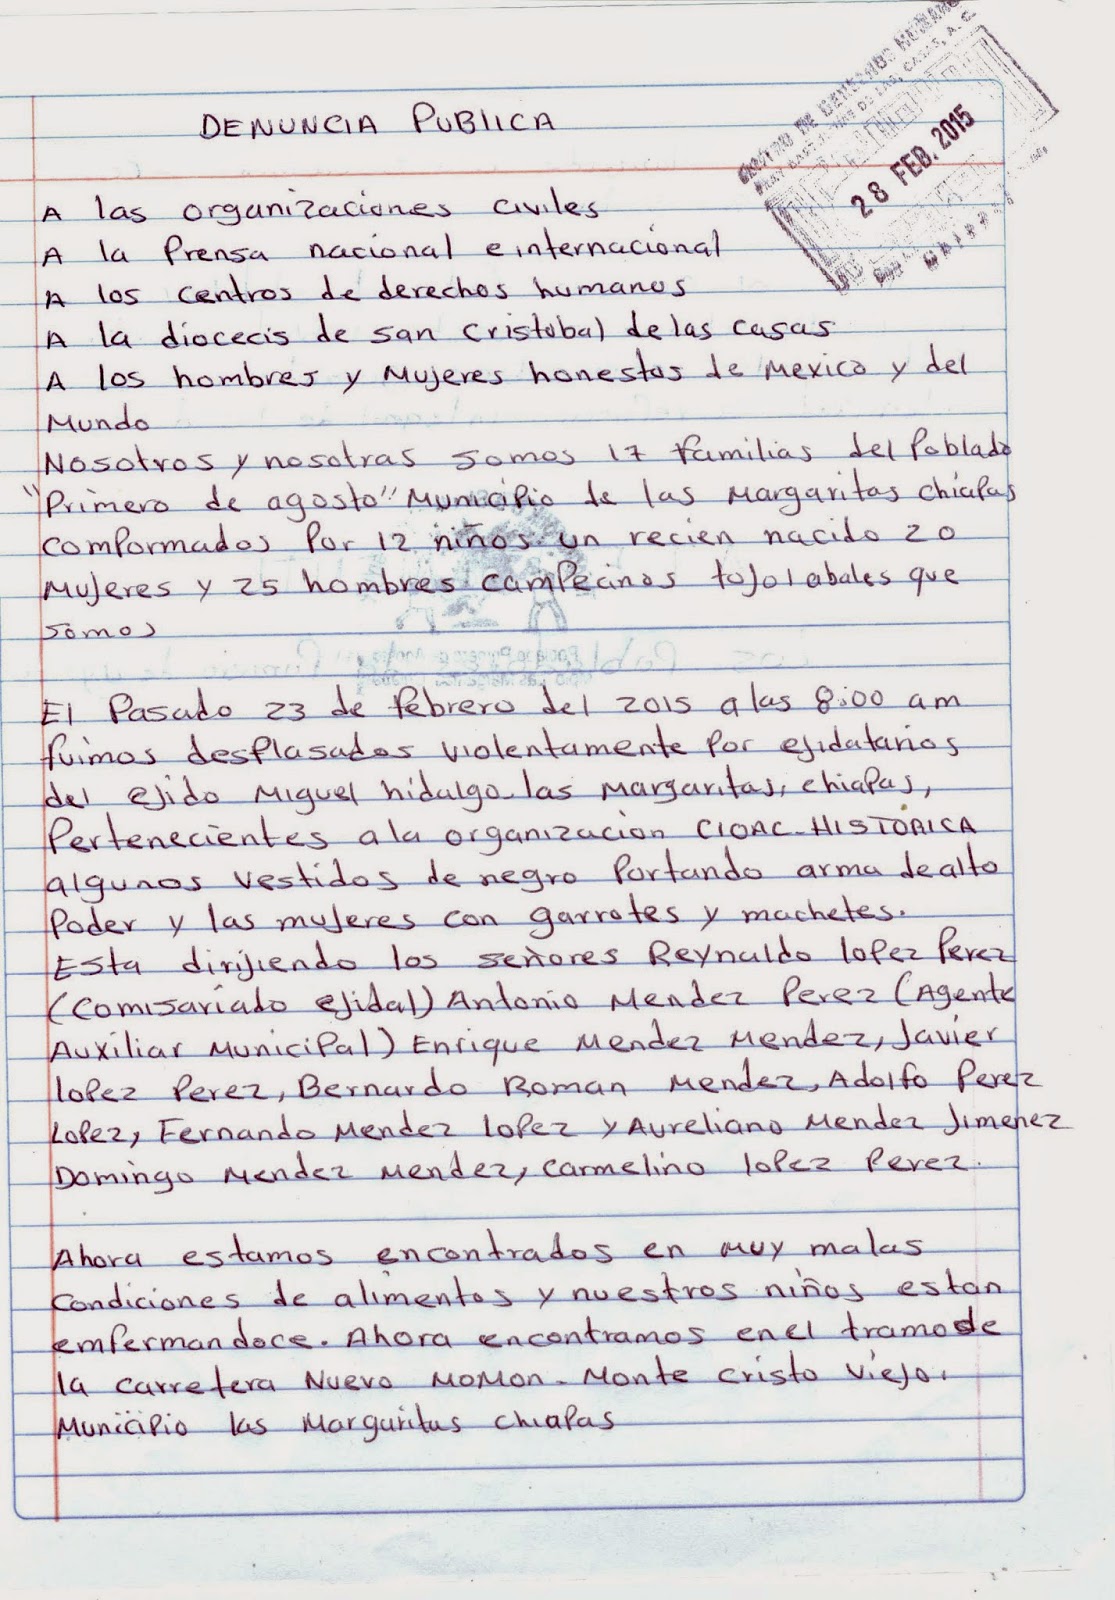 DENUNCIA PUBLICA
CENTRO DE DERECHOS HUMANOS
FRAY BARTOLOME DE LAS CASAS, A. C.
28 FEB. 2015
A las organizaciones civiles
A la Prensa nacional e internacional
A los centros de derechos humanos
A la diocecis de san Cristobal de las casas
A los hombres y Mujeres honestos de Mexico y del
Mundo
Nosotros y nosotras somos 17 familias del Poblado
"Primero de agosto" Municipio de las Margaritas Chiapas
comformados Por 12 niños un recien nacido 20
Mujeres y 25 hombres campecinos tojolabales que
somos
El Pasado 23 de febrero del 2015 a las 8:00 am
fuimos desplasados violentamente Por ejidatarios
del ejido Miguel hidalgo las Margaritas, chiapas,
Pertenecientes a la organizacion CIOAC-HISTORICA
algunos vestidos de negro Portando arma de alto
Poder y las mujeres con garrotes y machetes.
Esta dirijiendo los señores Reynaldo lopez Perez
(Comisariado ejidal) Antonio Mendez Perez (Agente
Auxiliar Municipal) Enrique Mendez Mendez, Javier
lopez Perez, Bernardo Roman Mendez, Adolfo Perez
Lopez, Fernando Mendez lopez y Aureliano Mendez Jimenez
Domingo Mendez Mendez, Carmelino lopez Perez.
Ahora estamos encontrados en muy malas
condiciones de alimentos y nuestros niños estan
emfermandoce. Ahora encontramos en el tramo de
la carretera Nuevo Momon - Monte cristo viejo.
Municipio las Margaritas chiapas